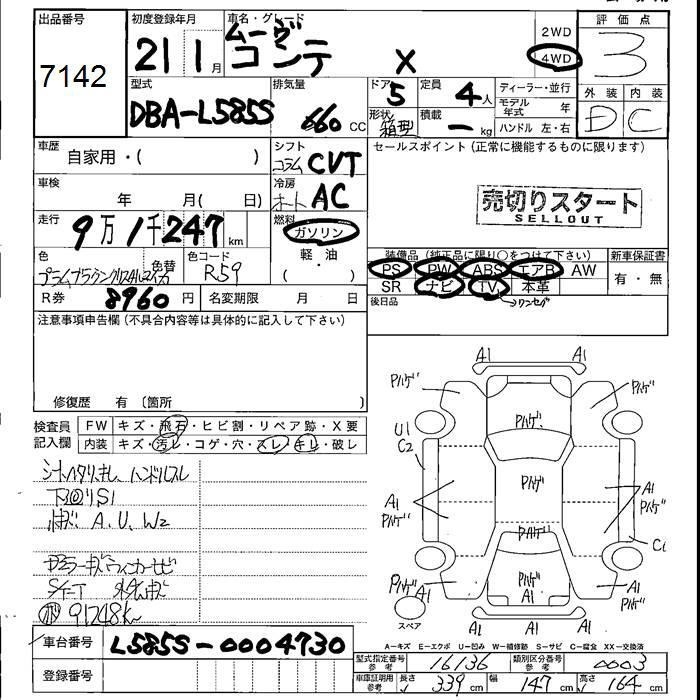 出品番号
7142
初度登録年月
21 1月
車名・グレード
ムーヴ
コンテ X
2WD
4WD
評価点
3
外装 内装
D C
型式
DBA-L585S
排気量
660 cc
ドア
5
形状
箱型
定員
4人
積載
ー kg
ディーラー・並行
モデル年式 年
ハンドル 左・右
車歴
自家用・( )
シフト
コラム CVT
車検
年 月( 日)
冷房
オート AC
走行
9万1千247km
燃料
ガソリン
軽・油
色
色替
色コード
R59
R券
8960円
名変期限 月 日
セールスポイント(正常に機能するものに限ります)
売切りスタート
SELLOUT
装備品(純正品に限り○をつけて下さい)
PS PW ABS エアB AW
SR ナビ TV 本革
ワンセグ
新車保証書
有・無
後日品
注意事項申告欄(不具合内容等は具体的に記入して下さい)
修復歴 有(箇所 )
検査員記入欄
FW キズ・飛石・ヒビ割・リペア跡・X要
内装 キズ・汚レ・コゲ・穴・スレ・キレ・破レ
シートヘタリ、キレ、ハンドルスレ
下回りS1
A、U、W2
91248km
A1 A1
Pハゲ Pハゲ
Pハゲ
U1
C2
Pハゲ
A1
Pハゲ
A1
Pハゲ
C1
Pハゲ
PハゲA1
A1
Pハゲ
A1
A1 A1 A1
スペア
A=キズ E=エクボ U=凹み W=補修跡 S=サビ C=腐食 XX=交換済
車台番号
L585S-0004730
登録番号
型式指定番号 参考
16136
類別区分番号 参考
0003
車庫証明用 参考
長さ 339cm
幅 147cm
高さ 164cm